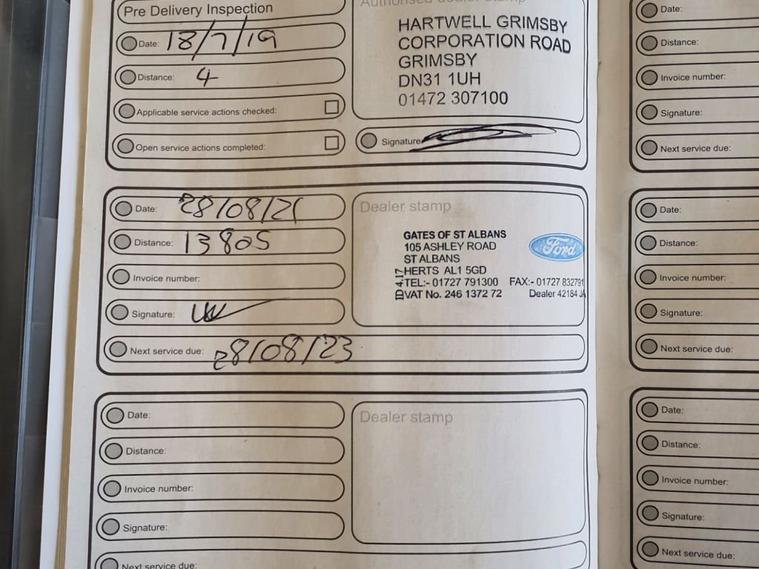 Pre Delivery Inspection
Date: 18/7/19
Distance: 4
Applicable service actions checked:
Open service actions completed:
Authorised dealer stamp
HARTWELL GRIMSBY
CORPORATION ROAD
GRIMSBY
DN31 1UH
01472 307100
Signature
Date: 28/08/21
Distance: 13805
Invoice number:
Signature:
Next service due: 28/08/23
Dealer stamp
GATES OF ST ALBANS
105 ASHLEY ROAD
ST ALBANS
HERTS AL1 5GD
TEL:- 01727 791300 FAX:- 01727 832791
VAT No. 246 1372 72 Dealer 42184
Ford
Date:
Distance:
Invoice number:
Signature:
Next service due:
Dealer stamp
Date:
Distance:
Invoice number:
Signature:
Next service due:
Date:
Distance:
Invoice number:
Signature:
Next service due:
Date:
Distance:
Invoice number:
Signature:
Next service due: